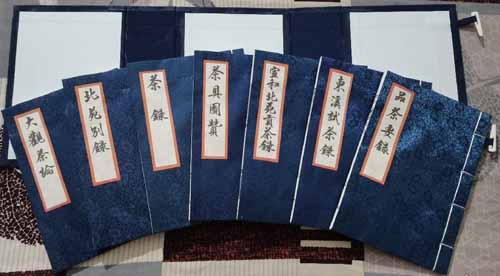 大觀茶論
北苑別錄
茶錄
茶具圖贊
宣和北苑貢茶錄
東溪試茶錄
品茶要錄